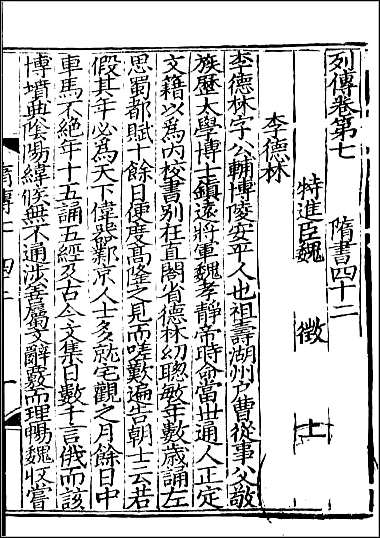 列傳卷第七　隋書四十二
特進臣魏　徵　上
李德林
李德林字公輔博陵安平人也祖壽湖州户曹從事父敬
族歷太學博士鎮遠將軍魏孝靜帝時命當世通人正定
文籍以爲内校書别在直閣省德林幼聰敏年數歳誦左
思蜀都賦十餘日便度髙隆之見而嗟歎遍告朝士云若
假其年必爲天下偉器鄴京人士多就宅觀之月餘日中
車馬不絶年十五誦五經及古今文集日數千言俄而該
博墳典陰陽緯候無不通涉善屬文辭覈而理暢魏收嘗